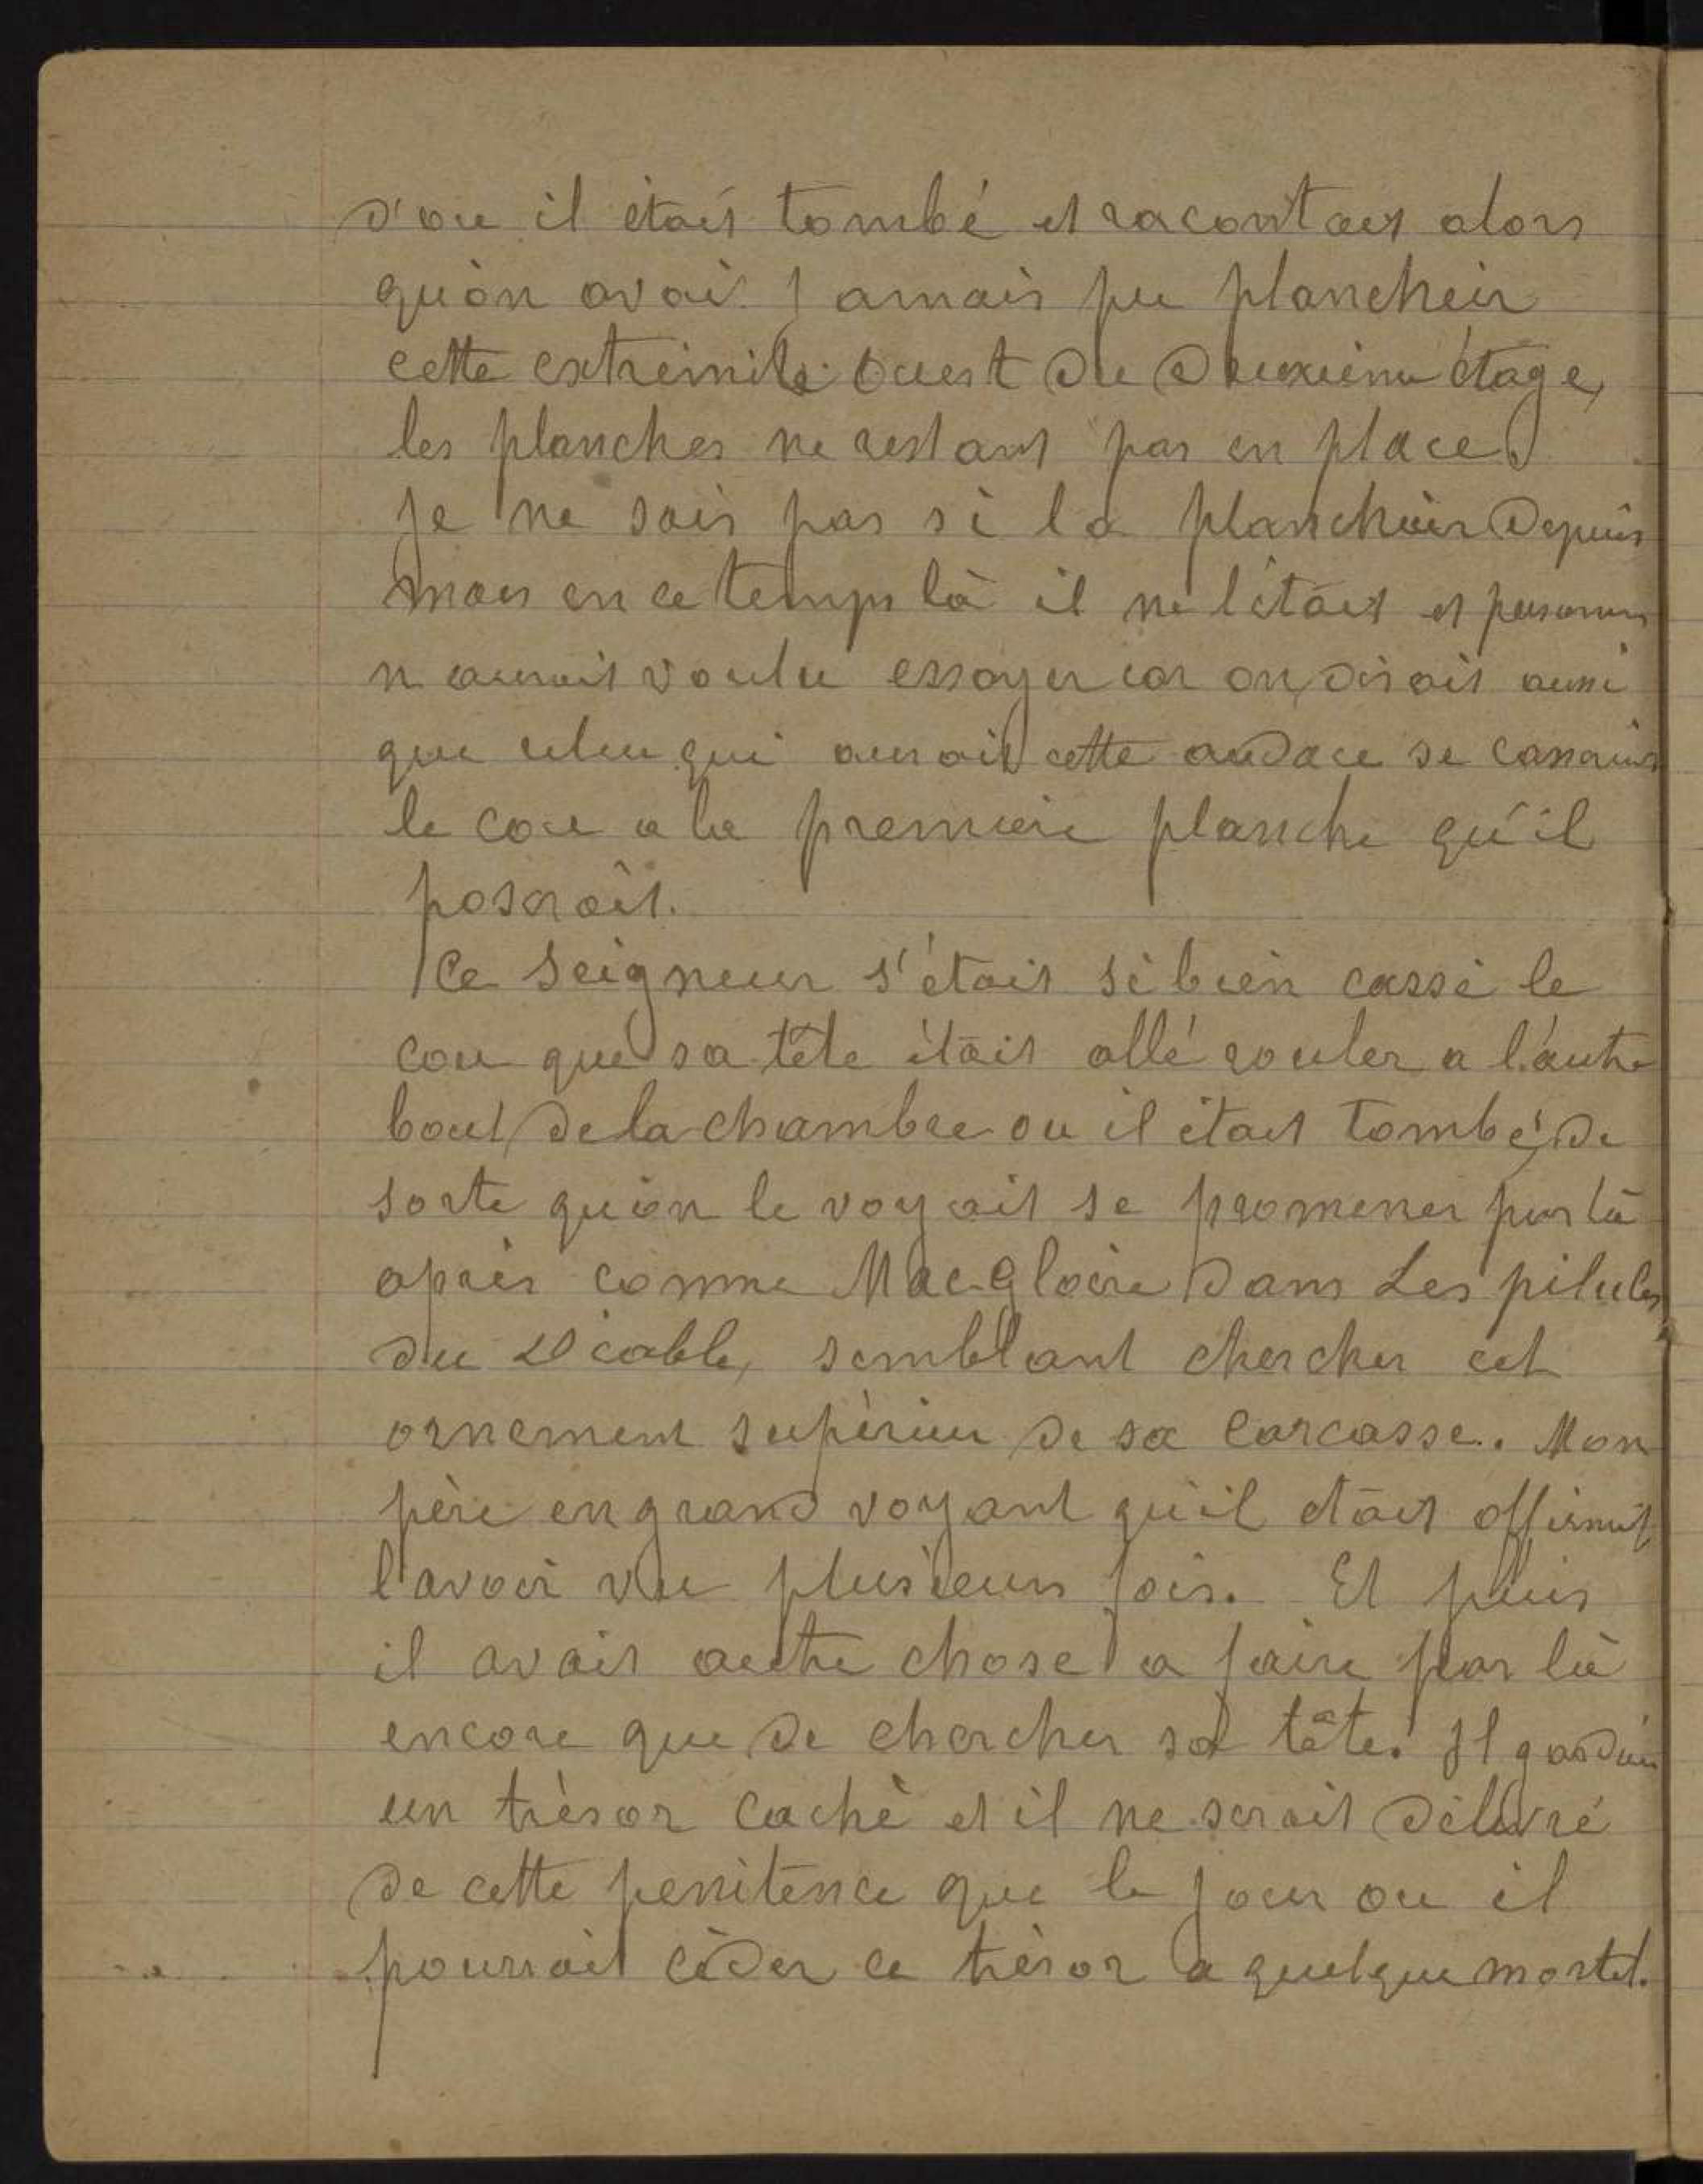 d'ou il était tombé et racontait alors
qu'on avait jamais pu plancheir
cette extrèmité ouest du deuxième étage,
les planches ne restant pas en place.
Je ne sais pas si la plancheir depuis
mais en ce temps là il ne l'était et personne
n aurait voulu essayer car on disait aussi
que celui qui aurait cette audace se casserait
le cou a la premiere planche qu'il
poserait.
Ce Seigneur s'était si bien cassé le
cou que sa tête était allé rouler a l'autre
bout de la chambre ou il était tombé, de
sorte qu'on le voyait se promener par là
après comme Mac-Gloire dans Les pilules
du Diable, semblant chercher cet
ornement supérieur de sa carcasse. Mon
père en grand voyant qu'il était affirmait
l'avoir vu plusieurs fois. Et puis
il avait autre chose a faire par là
encore que de chercher sa tête. Il gardait
un trèsor caché et il ne serait délivré
de cette penitence que le jour ou il
pourrait céder ce trésor a quelque mortel.